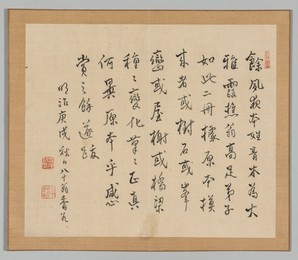 餘風嶺本姓青木為火
雅霞樵翁高足弟子
如此二冊據原本模
來者或樹石或峯
巒或屋榭或橋梁
種之變化筆之正真
何異原本乎感心
賞之餘遂跋
明治庚戌秋日八十翁